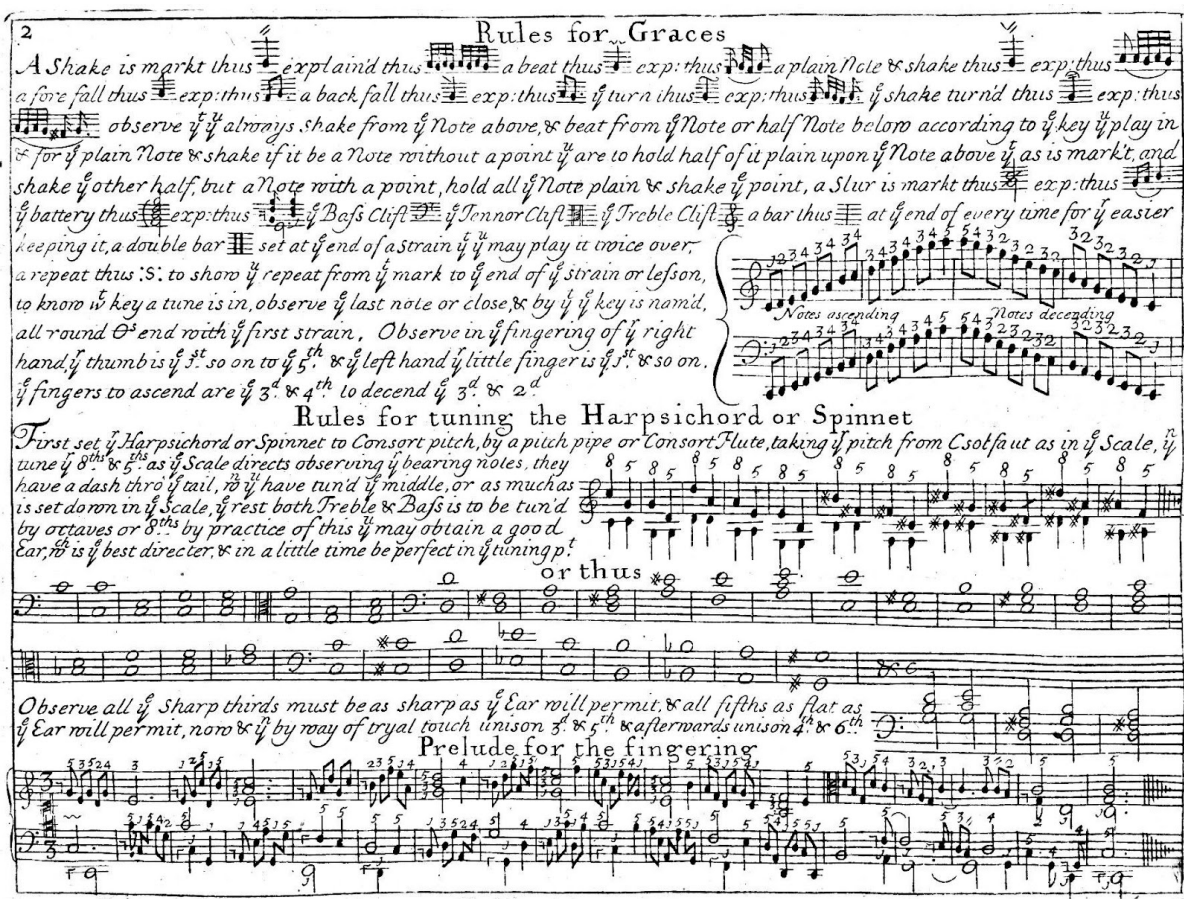 2
Rules for Graces
A Shake is markt thus explain'd thus a beat thus exp: thus a plain Note & shake thus exp: thus
a fore fall thus exp: thus a back fall thus exp: thus yͤ turn thus exp: thus yͤ shake turn'd thus exp: thus
observe yͭ yͧ always shake from yͤ Note above, & beat from yͤ Note or half Note below according to yͤ key yͧ play in
& for yͤ plain Note & shake if it be a Note without a point yͧ are to hold half of it plain upon yͤ Note above yͭ as is mark't, and
shake yͤ other half, but a Note with a point, hold all yͤ Note plain & shake yͤ point, a Slur is markt thus exp: thus
yͤ battery thus exp: thus yͤ Baſs Clift yͤ Tennor Clift yͤ Treble Clift a bar thus at yͤ end of every time for yͤ easier
keeping it, a double bar set at yͤ end of a strain yͭ yͧ may play it twice over,
a repeat thus :S: to show yͧ repeat from yͭ mark to yͤ end of yͤ strain or leſson,
to know wͭ key a tune is in, observe yͤ last note or close, & by yͭ yͤ key is nam'd,
all round Oˢ end with yͤ first strain. Observe in yͤ fingering of yͬ right
hand, yͬ thumb is yͤ 1ˢᵗ so on to yͤ 5ᵗʰ & yͤ left hand yͤ little finger is yͤ 1ˢᵗ & so on.
yͤ fingers to ascend are yͤ 3ᵈ & 4ᵗʰ to decend yͤ 3ᵈ & 2ᵈ
Notes ascending Notes decending
Rules for tuning the Harpsichord or Spinnet
First set yͤ Harpsichord or Spinnet to Consort pitch, by a pitch pipe or Consort Flute, taking yͤ pitch from Csolfaut as in yͤ Scale, yⁿ
tune yͤ 8ᵗʰˢ & 5ᵗʰˢ as yͤ Scale directs observing yͤ bearing notes, they
have a dash thro' yͤ tail, wⁿ yͧ have tun'd yͤ middle, or as much as
is set down in yͤ Scale, yͤ rest both Treble & Baſs is to be tun'd
by octaves or 8ᵗʰˢ by practice of this yͧ may obtain a good
Ear, wᶜʰ is yͤ best directer, & in a little time be perfect in yͤ tuning pᵗ
or thus
&c
Observe all yͤ Sharp thirds must be as sharp as yͤ Ear will permit, & all fifths as flat as
yͤ Ear will permit, now & yⁿ by way of tryal touch unison 3ᵈ & 5ᵗʰ & afterwards unison 4ᵗʰ & 6ᵗʰ
Prelude for the fingering